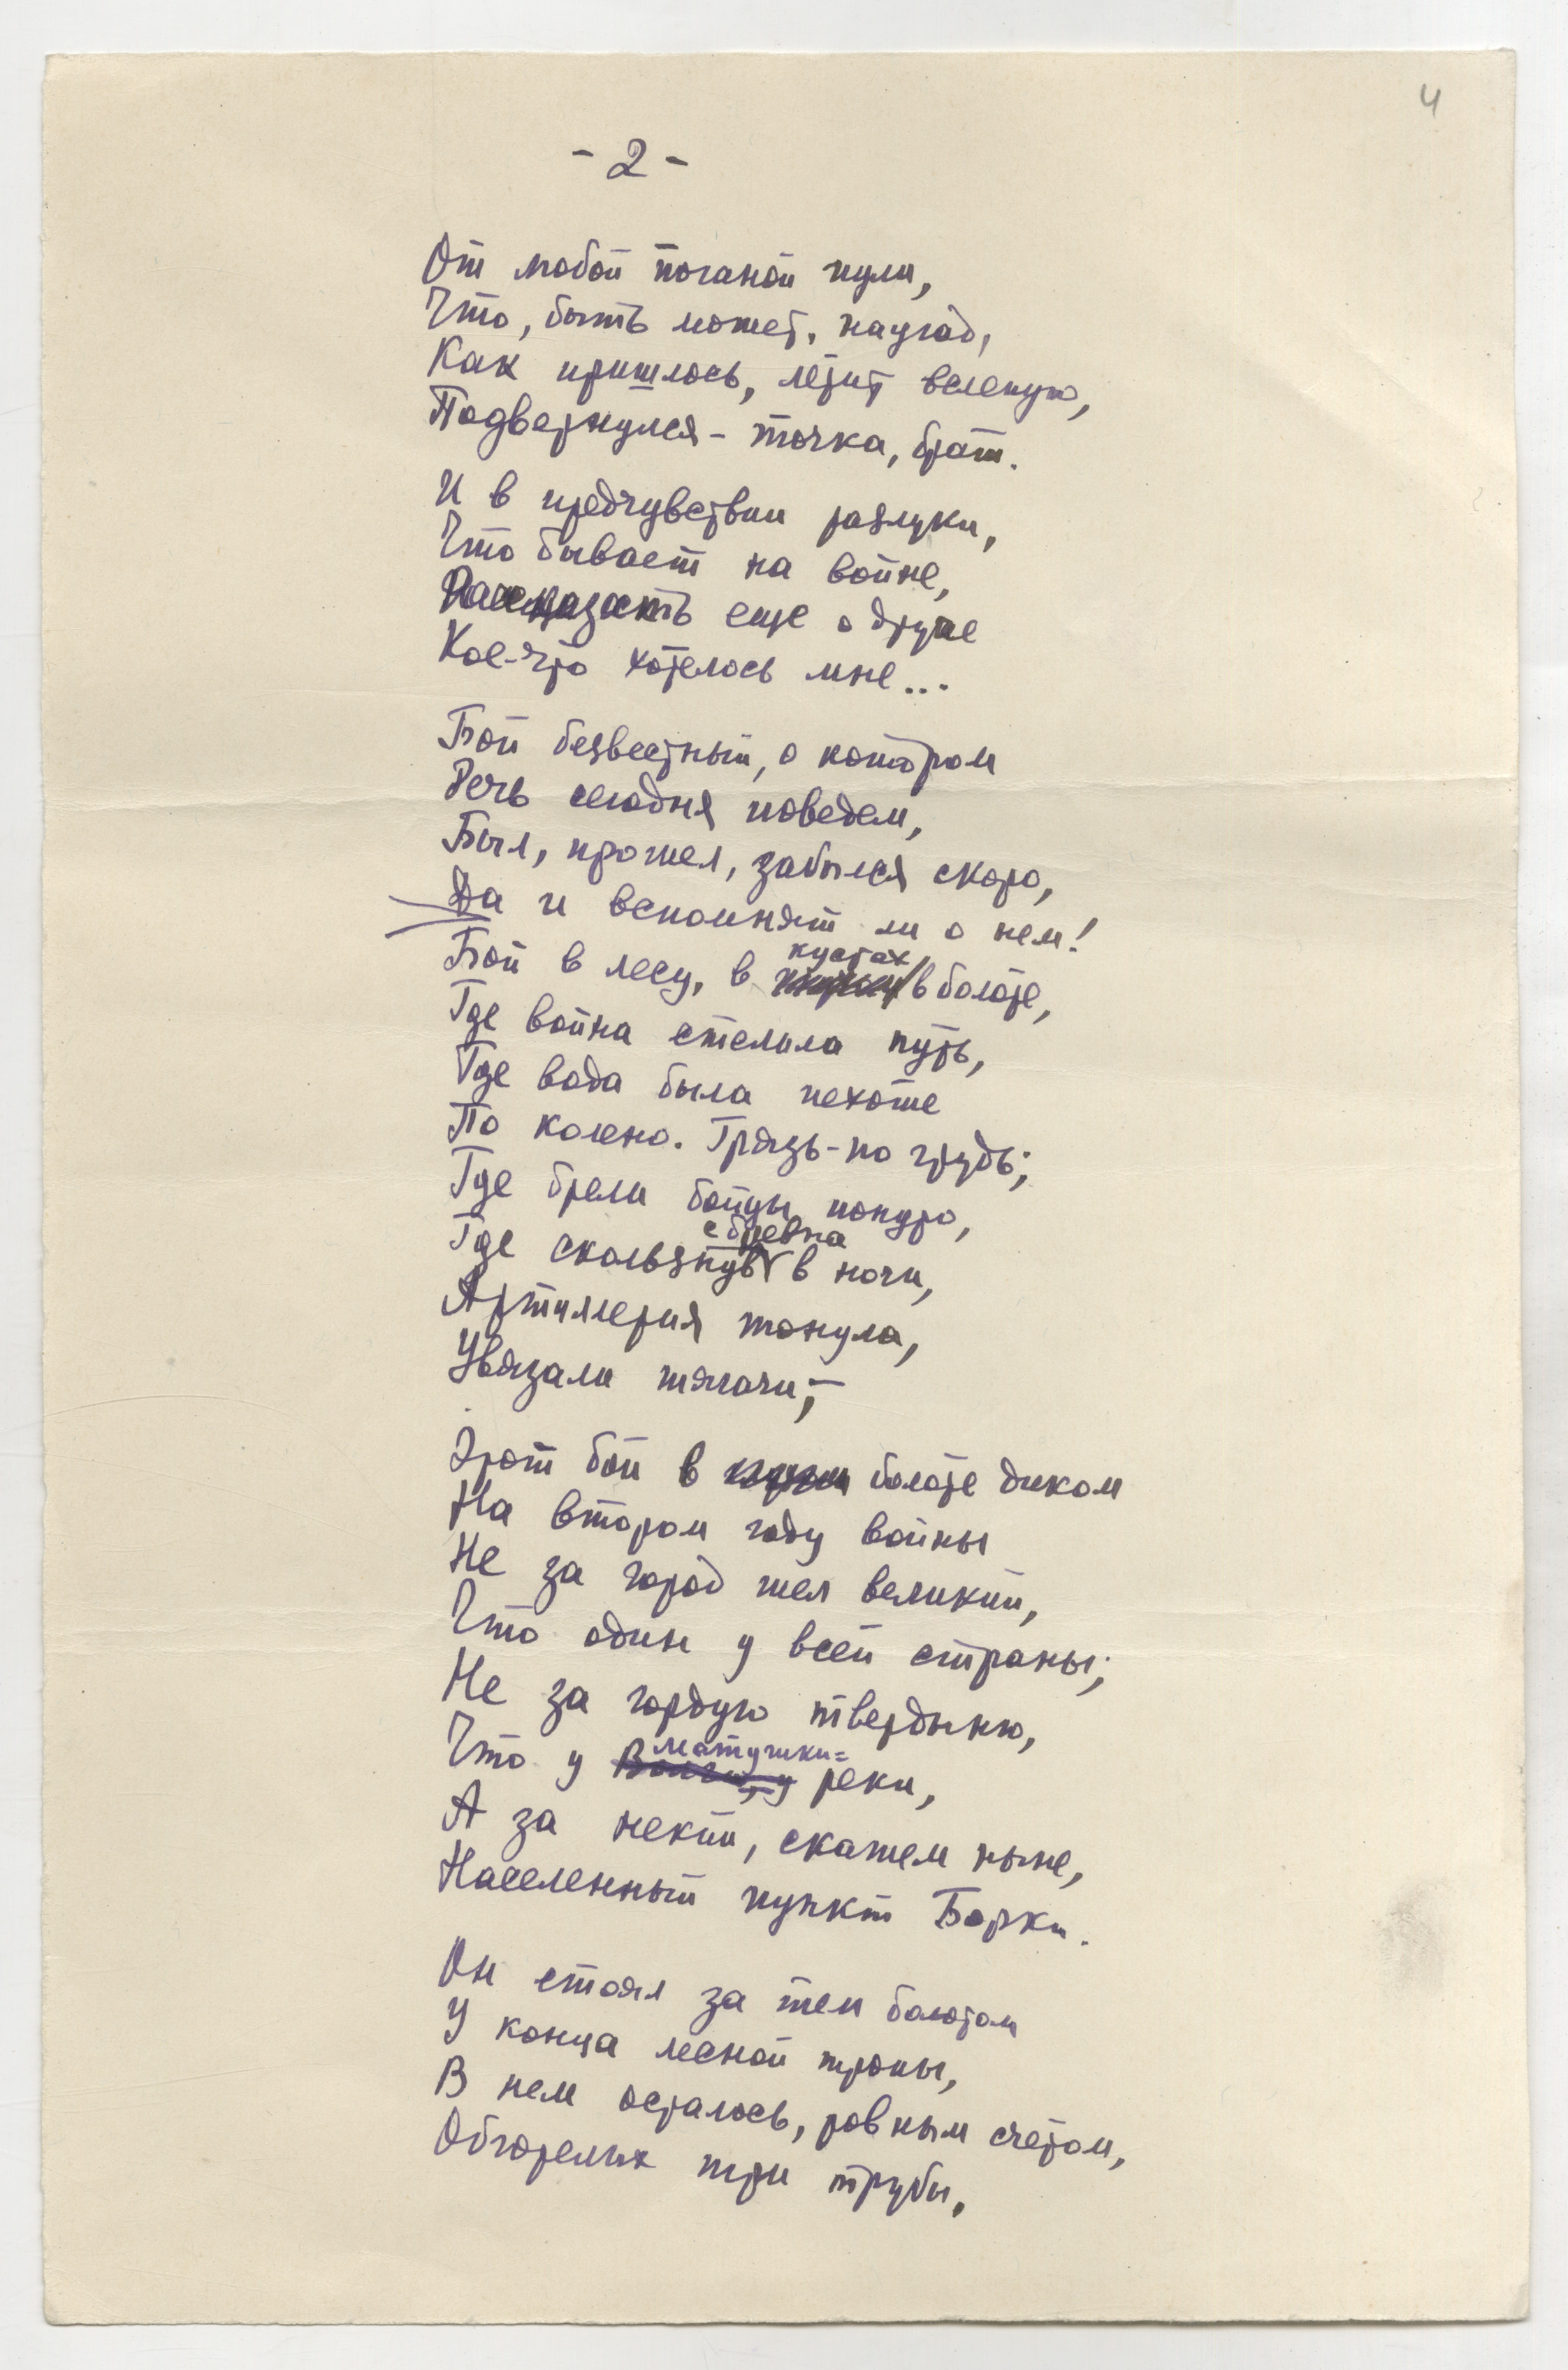 4
- 2 -
От любой поганой пули,
Что, быть может, наугад,
Как пришлось, летит вслепую,
Подвернулся - точка, брат.
И в предчувствии разлуки,
Что бывает на войне,
Рассказать еще о друге
Кое-что хотелось мне...
Бой безвестный, о котором
Речь сегодня поведем,
Был, прошел, забылся скоро,
Да и вспомнят ли о нем!
кустах,
Бой в лесу, в в болоте,
Где война стелила путь,
Где вода была пехоте
По колено. Грязь - по грудь;
Где брели бойцы понуро,
с бревна
Где скользнув в ночи,
Артиллерия тонула,
Увязали тягачи; -
Этот бой в болоте диком
На втором году войны
Не за город шел великий,
Что один у всей страны;
Не за гордую твердыню,
матушки=
Что у Волги, у реки,
А за некий, скажем ныне,
Населенный пункт Борки.
Он стоял за тем болотом
У конца лесной тропы,
В нем осталось, ровным счетом,
Обгорелых три трубы,